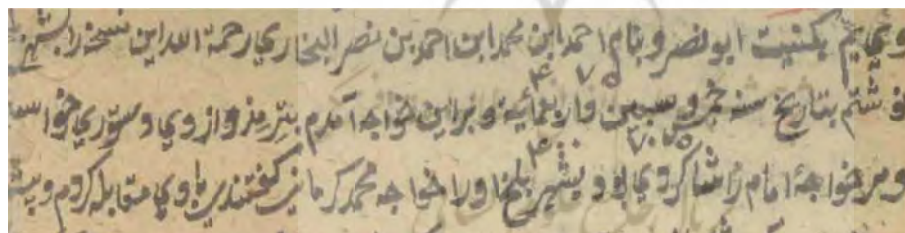 وی یم بکنیت ابو نصر و بنام احمد ابن محمد ابن احمد بن نصر البخاری رحمة الله این نسخه را بشهر
نوشتم بتاریخ سنه خمس و سبعین و اربعمائیه و بر این خواجه آمدم بترمذ و از وی دستوری خواستم
و مر خواجه امام را شاکردی بود بشهر بلخ او را خواجه محمد کرمانی کفتندی باوی مقابله کردم و